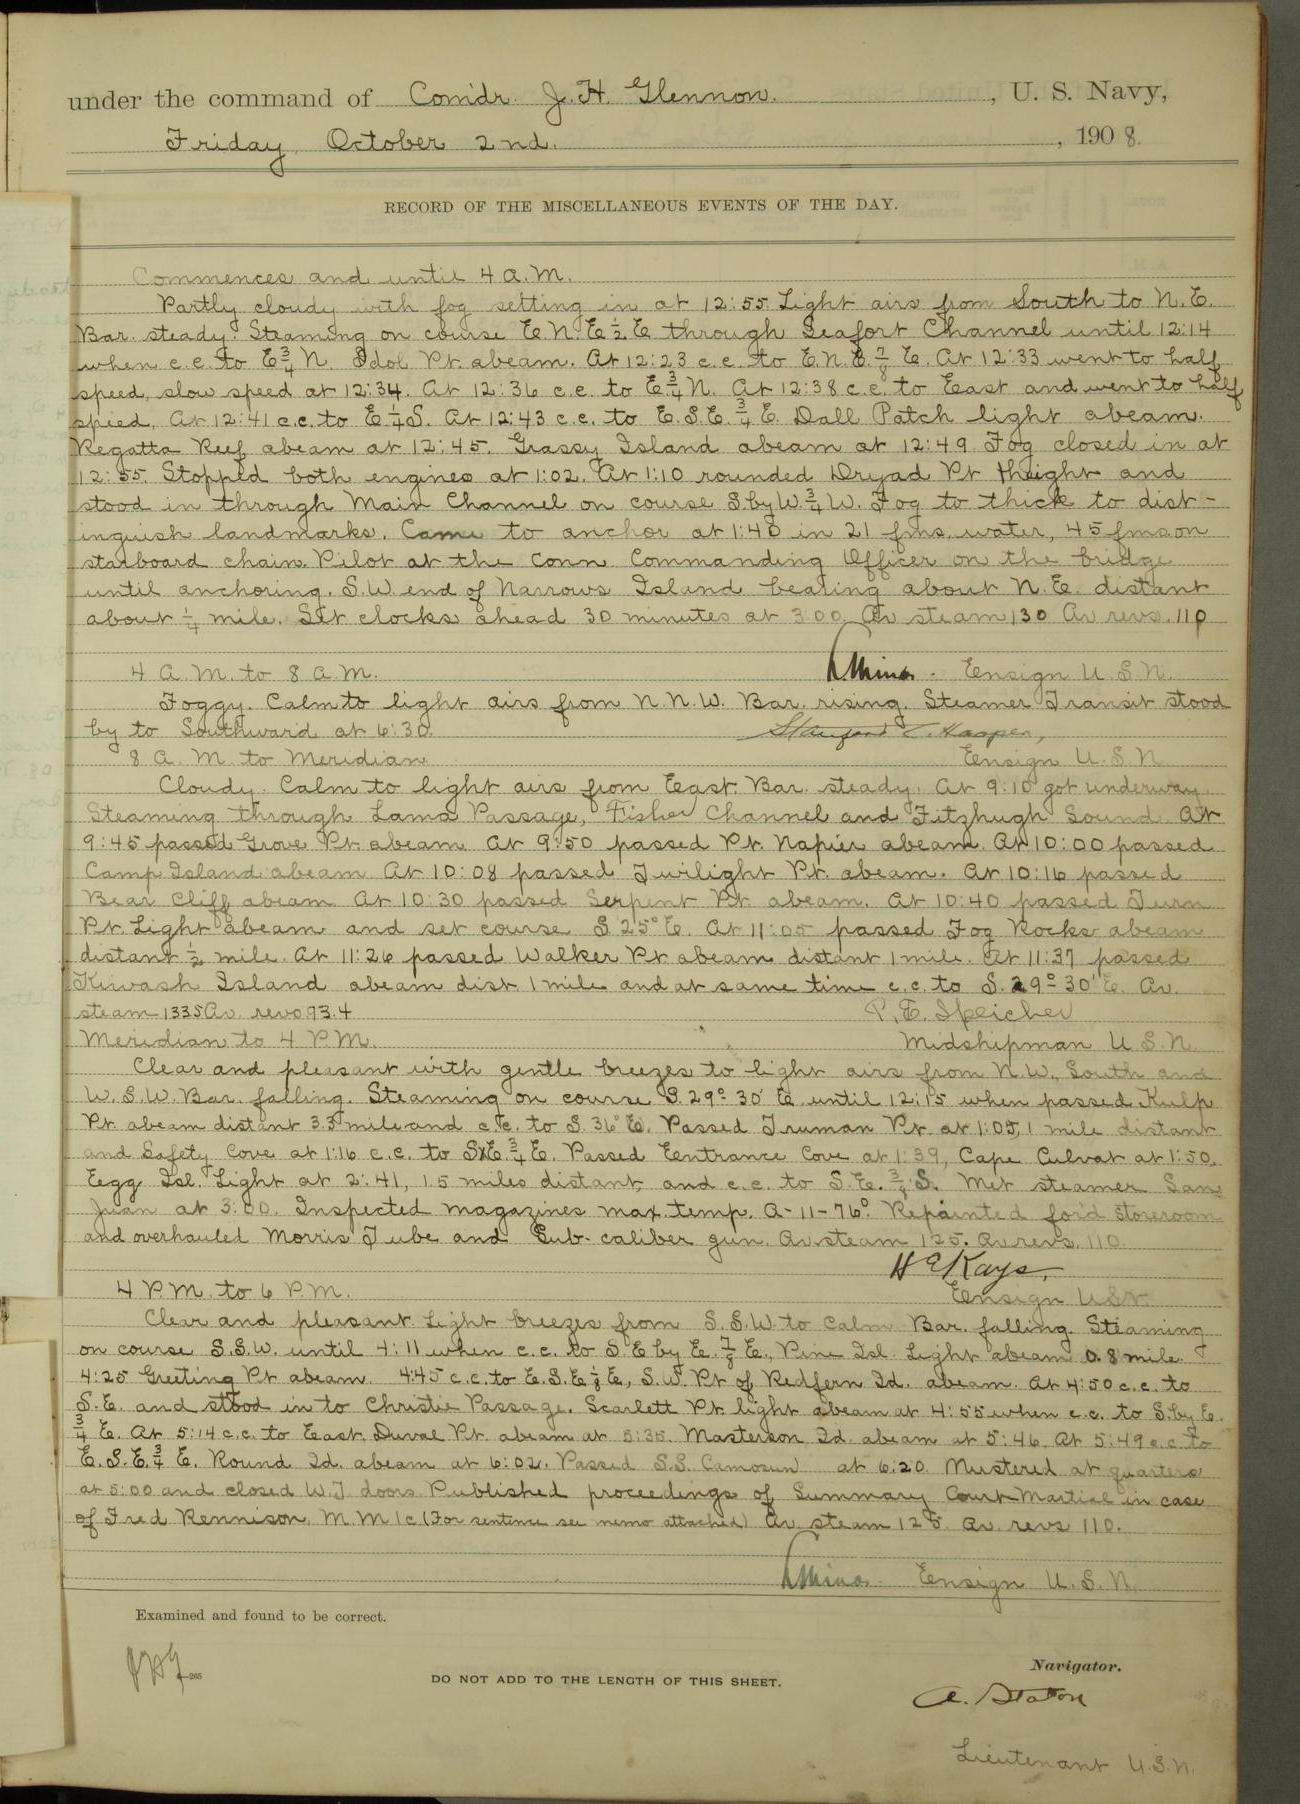 under the command of Com'dr. J. H. Glennon. , U. S. Navy,
Friday, October 2nd. , 1908.
RECORD OF THE MISCELLANEOUS EVENTS OF THE DAY.
Commences and until 4 A.M.
Partly cloudy with fog setting in at 12:55. Light airs from South to N.E.
Bar. steady. Steaming on course E.N.E ½ E through Seafort Channel until 12:14
when c.c. to E ¾ N. Idol Pt. abeam. At 12:23 c.c. to E.N.E. ⅞ E. At 12:33 went to half
speed, slow speed at 12:34. At 12:36 c.c. to E. ¾ N. At 12:38 c.c. to East and went to half
speed, At 12:41 c.c. to E ¼ S. At 12:43 c.c. to E.S.E. ¾ E. Dall Patch light abeam.
Regatta Reef abeam at 12:45. Grassy Island abeam at 12:49. Fog closed in at
12:55. Stopped both engines at 1:02. At 1:10 rounded Dryad Pt light and
stood in through Main Channel on course S. by W. ¾ W. Fog to thick to dist-
inguish landmarks. Came to anchor at 1:40 in 21 fms. water, 45 fms. on
starboard chain. Pilot at the conn Commanding Officer on the bridge
until anchoring. S.W. end of Narrows Island bearing about N.E. distant
about ¼ mile. Set clocks ahead 30 minutes at 3:00. Av steam 130 Av revs. 110
4 A.M. to 8 A.M. Ensign U.S.N.
Foggy. Calm to light airs from N.N.W. Bar. rising. Steamer Transit stood
by to Southward at 6:30. Stanford C. Hooper,
8 A.M. to Meridian Ensign U.S.N.
Cloudy. Calm to light airs from East. Bar. steady. At 9:10 got underway.
Steaming through Lama Passage, Fisher Channel and Fitzhugh Sound. At
9:45 passed Grove Pt. abeam. At 9:50 passed Pt. Napier abeam. At 10:00 passed
Camp Island abeam. At 10:08 passed Twilight Pt. abeam. At 10:16 passed
Bear Cliff abeam At 10:30 passed Serpent Pt. abeam. At 10:40 passed Turn
Pt. Light abeam and set course S 25° E. At 11:05 passed Fog Rocks abeam
distant ½ mile. At 11:26 passed Walker Pt. abeam distant 1 mile. At 11:37 passed
Kiwash Island abeam dist. 1 mile and at same time c.c. to S. 29° 30' E. Av.
steam 133.5 Av. revs 93.4 P. E. Speicher
Meridian to 4 P.M. Midshipman U.S.N.
Clear and pleasant with gentle breezes to light airs from N.W., South and
W.S.W. Bar. falling. Steaming on course S. 29° 30' E. until 12:15 when passed Kulp
Pt. abeam distant 3.5 mile and c.c. to S. 36° E. Passed Truman Pt. at 1:05, 1 mile distant
and Safety Cove at 1:16 c.c. to SxE. ¾ E. Passed Eentrance Cove at 1:39, Cape Culvat at 1:50.
Eegg Isl. Light at 2:41, 1.5 miles distant, and c.c. to S.E. ¾ S. Met steamer San
Juan at 3:00. Inspected magazines max. temp. A-11-76°. Repainted for'd storeroom
and overhauled Morris Tube and Sub-caliber gun. Av. steam 125. Av. revs. 110.
H E Kays,
4 P.M. to 6 P.M. Ensign USN.
Clear and pleasant. Light breezes from S.S.W. to calm Bar. falling. Steaming
on course S.S.W. until 4:11 when c.c. to S.E by E. ⅞ E., Pine Isl. Light abeam 0.8 mile.
4:25 Greeting Pt abeam. 4:45 c.c. to E.S.E ⅛ E, S.W. Pt of Redfern Id. abeam. At 4:50 c.c. to
S.E. and stood in to Christie Passage. Scarlett Pt. light abeam at 4:55 when c.c. to S. by E.
¾ E. At 5:14 c.c. to East, Duval Pt. abeam at 5:35. Masterson Id. abeam at 5:46. At 5:49 c.c. to
E.S.E. ¾ E. Round Id. abeam at 6:02. Passed S.S. Camosun at 6:20. Mustered at quarters
at 5:00 and closed W.T. doors. Published proceedings of Summary Court-Martial in case
of Fred Rennison, M.M 1c (For sentence see memo attached) Av. steam 125. Av. revs 110.
Ensign U.S.N.
Examined and found to be correct.
JHG
265
DO NOT ADD TO THE LENGTH OF THIS SHEET.
Navigator.
A. Staton
Lieutenant U.S.N.